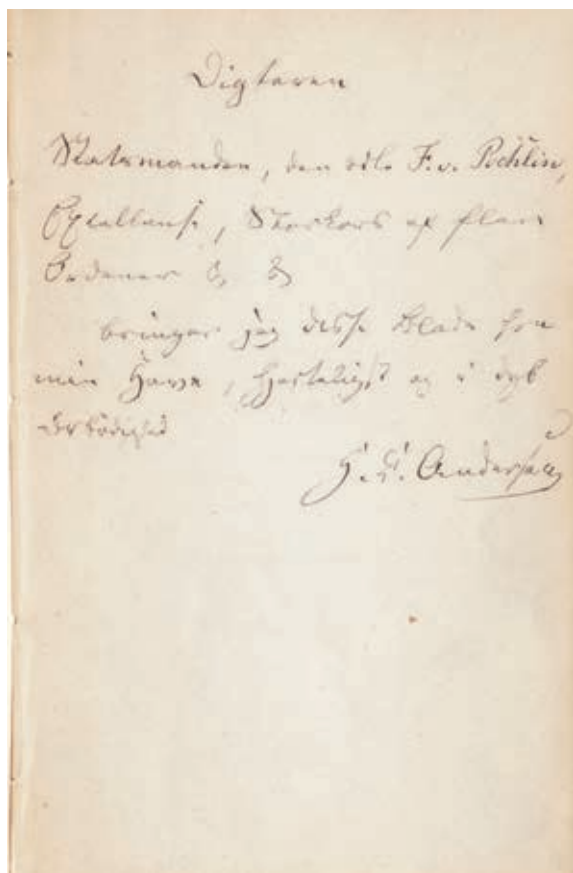 Digteren
Statsmanden, den ædle F. v. Pechlin,
Excellence, Storkors af flere
Ordener & &
bringer jeg disse Blade fra
min Have, hjerteligst og i dyb
Ærbødighed
H. C. Andersen